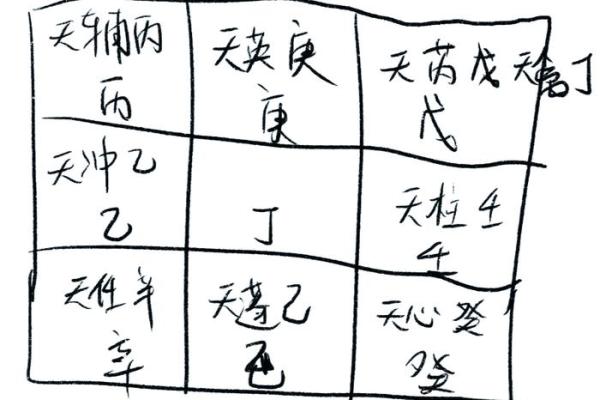 天辅丙
丙
天英庚
庚
天芮戊天禽丁
戊
天冲乙
乙
丁
天柱壬
壬
天任辛
辛
天蓬己
己
天心癸
癸